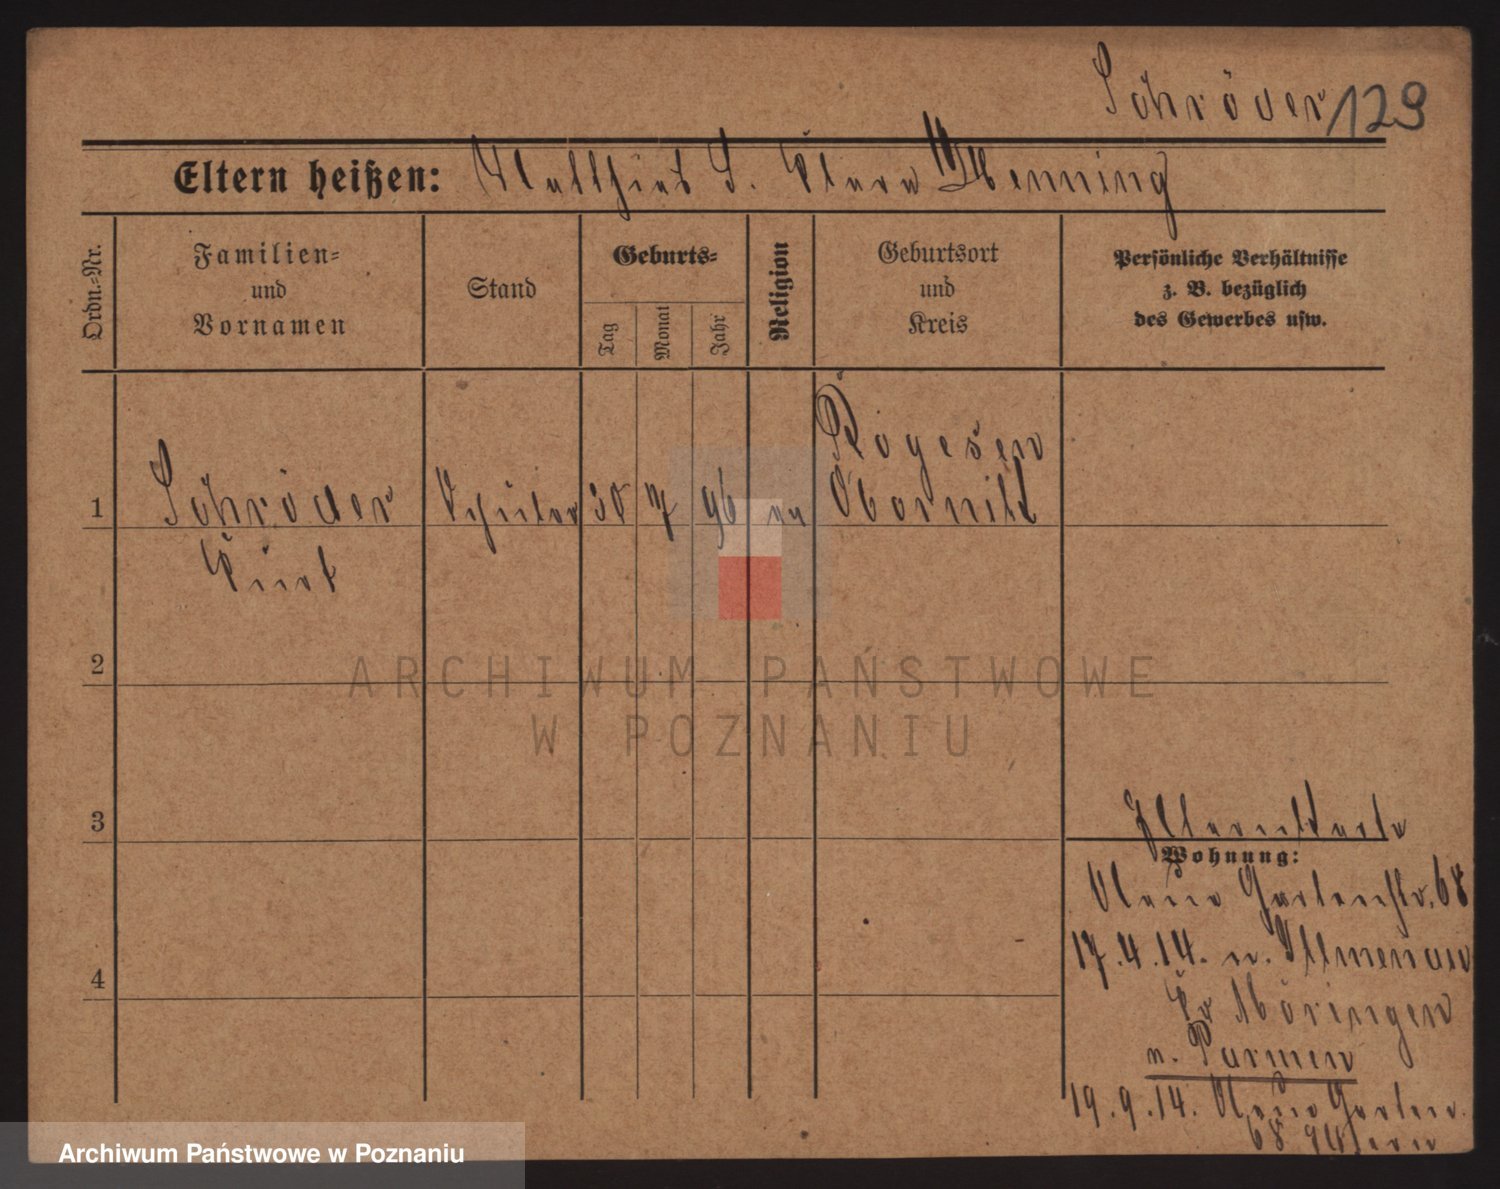 Schröder 129
Eltern heißen: Matthias S. Clara Henning
Ordn.-Nr.
Familien-
und
Vornamen
Stand
Geburts-
Tag
Monat
Jahr
Religion
Geburtsort
und
Kreis
Persönliche Verhältnisse
z. B. bezüglich
des Gewerbes usw.
Rogasen
1 Schröder Schüler 30 7 96 Obornik
Kurt
2
3
4
Elternkarte
Wohnung:
Neue Gartenstr. 68
17.4.14. n. Illmenau
Kr
n. Parmen
19.9.14. Neue Garten
68 Eltern
ARCHIWUM PAŃSTWOWE
W POZNANIU
Archiwum Państwowe w Poznaniu